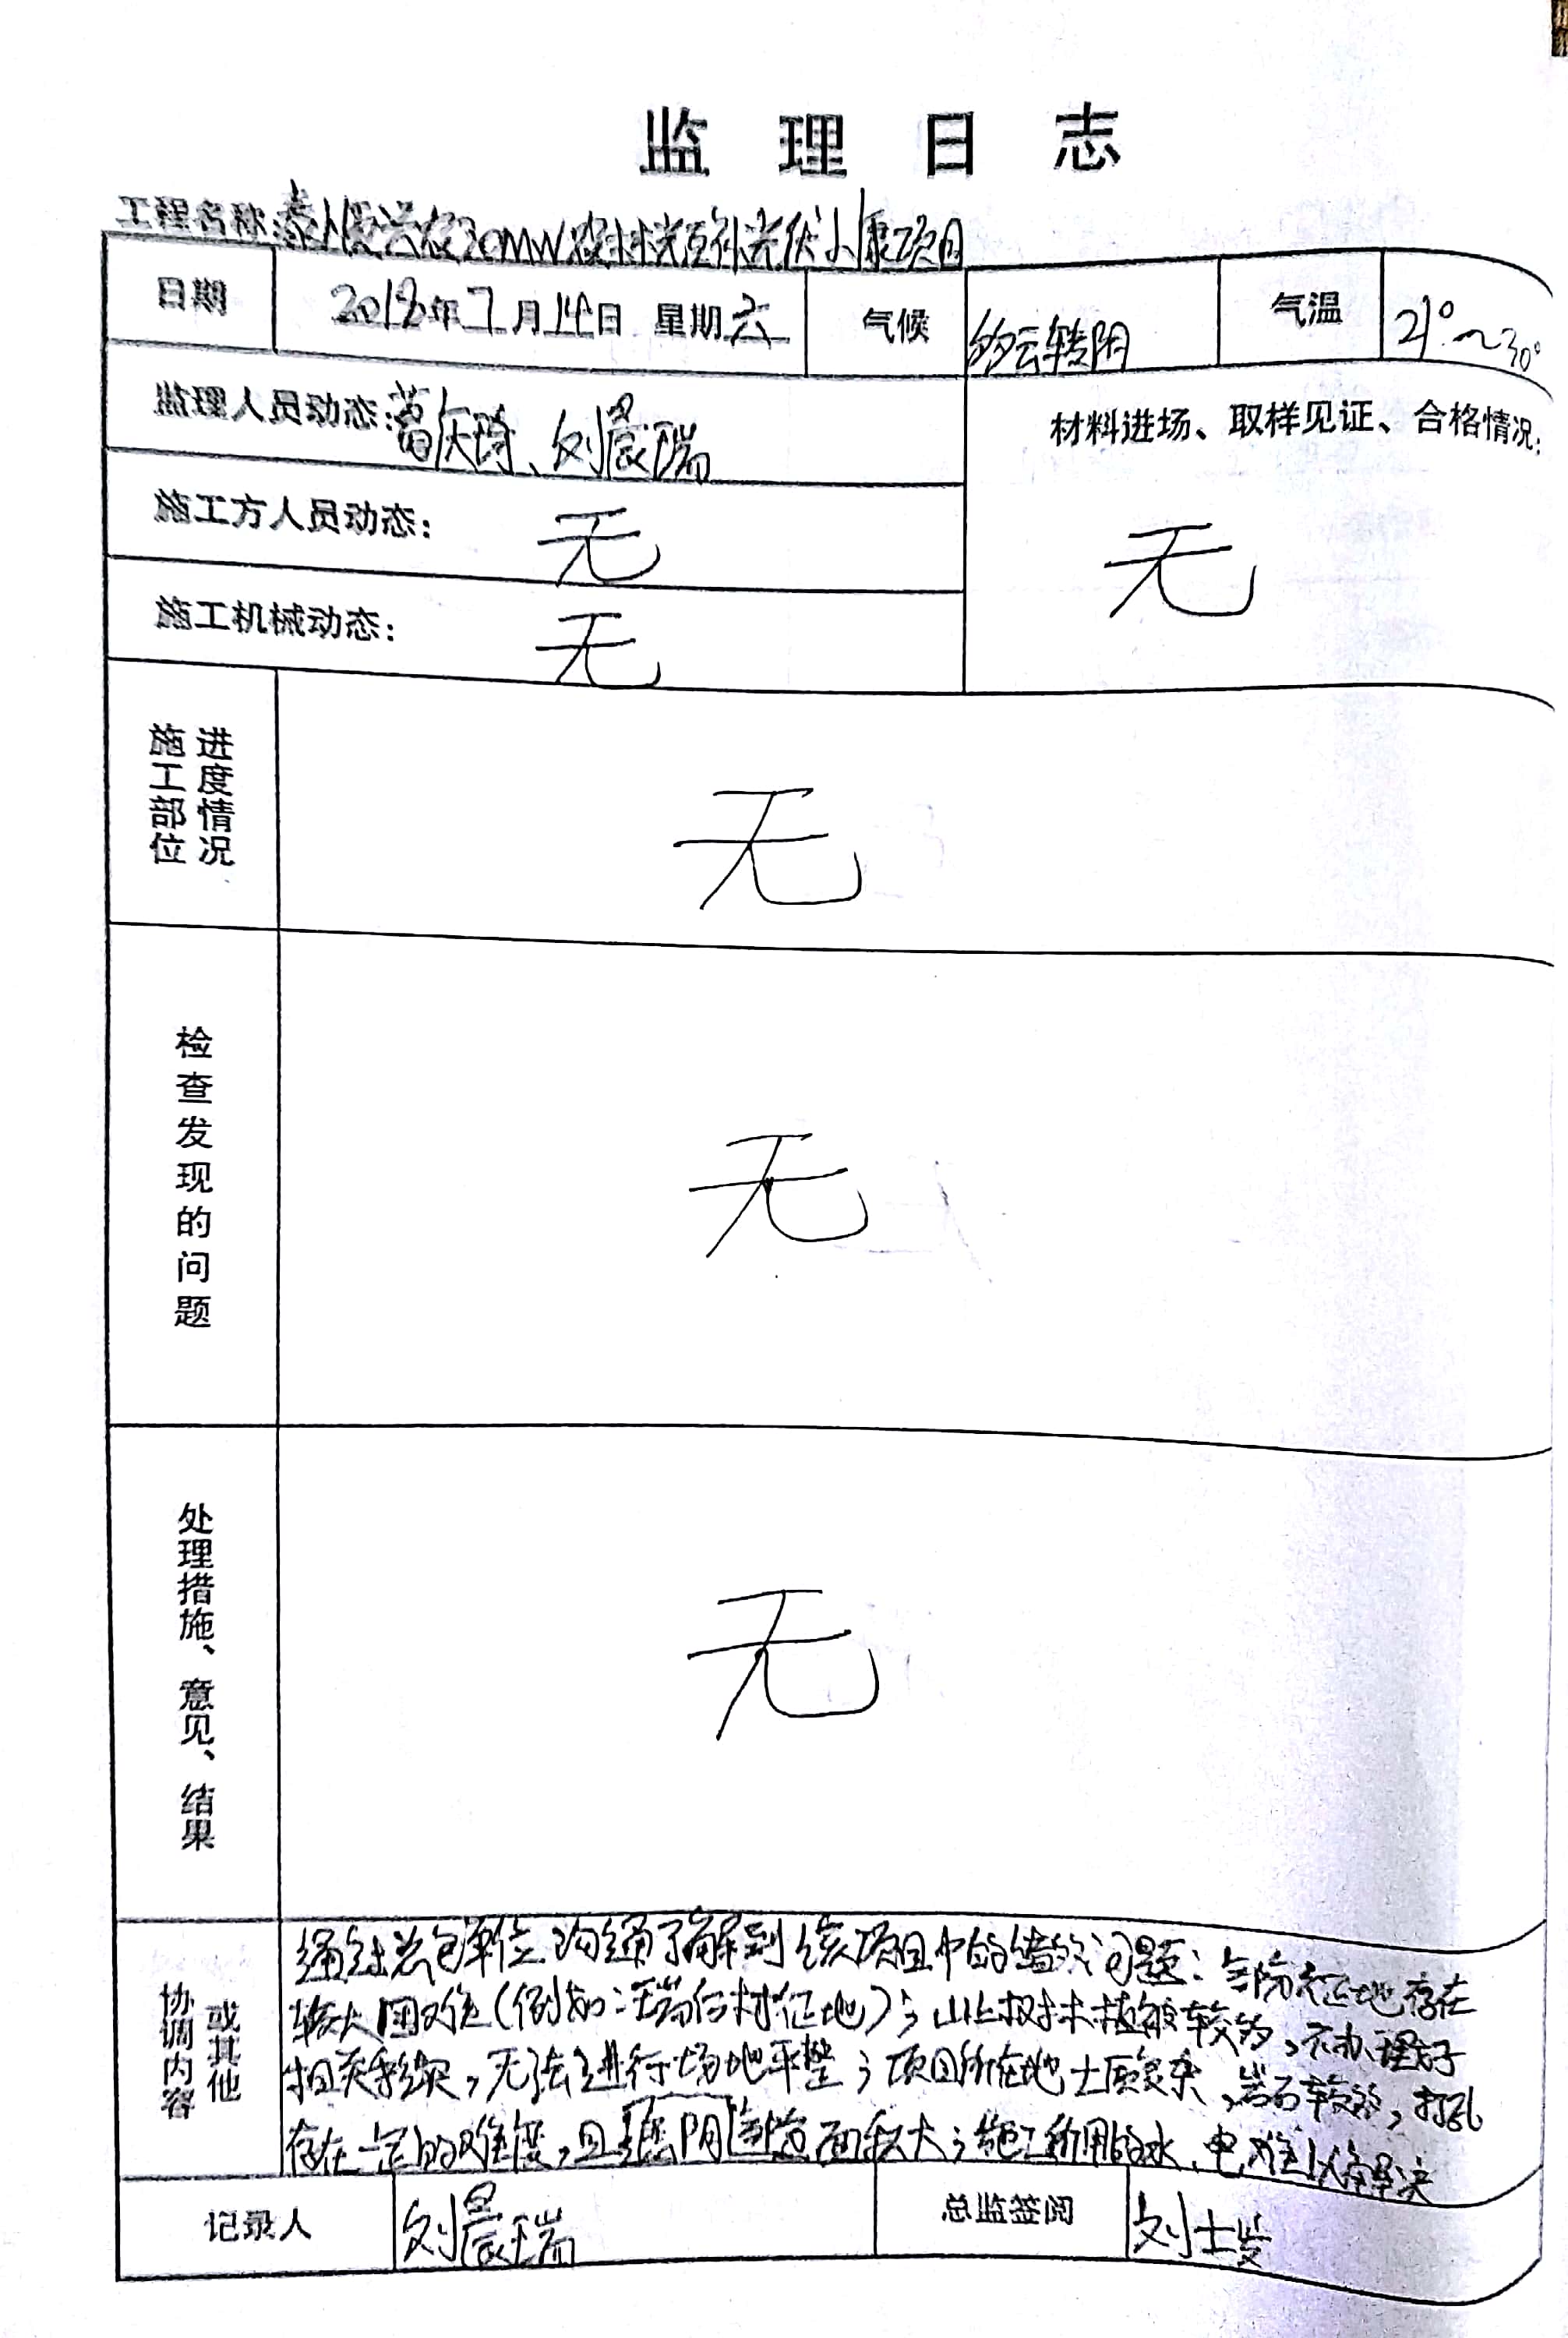 监理日志
工程名称:泰人凌洪农30MW农林光互补光伏小康项目
日期 2018年7月14日 星期六 气候 多云转阴 气温 21°~30°
监理人员动态:葛庆琦、刘晨瑞
材料进场、取样见证、合格情况:
无
施工方人员动态: 无
施工机械动态: 无
施工部位 进度情况
无
检查发现的问题
无
处理措施、意见、结果
无
协调内容 或其他
通过总包单位沟通了解到该项目中的诸多问题:征地存在
较大困难(例如:瑞仔村征地);山上树木植被较多,不办理好
相关手续,无法进行场地平整;项目所在地土质复杂,岩石较多,打孔
存在一定的难度,且阴面积大;施工所用的水、电难以解决
记录人 刘晨瑞 总监签阅 刘士岁